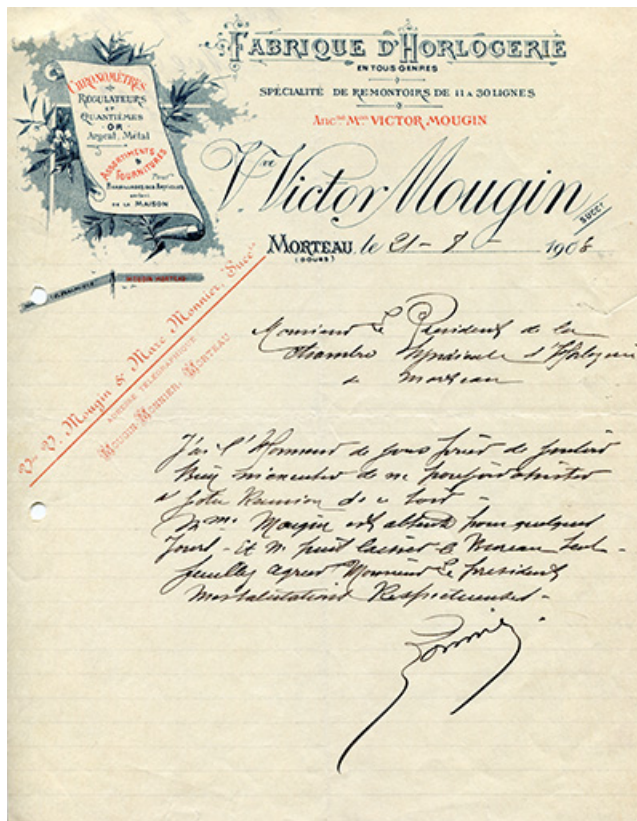 FABRIQUE D'HORLOGERIE
EN TOUS GENRES
SPÉCIALITÉ DE REMONTOIRS DE 11 A 30 LIGNES
Ancne Mon VICTOR MOUGIN
Vve Victor Mougin
SUCCr
MORTEAU, le 21 - 8 - 1906
(DOUBS)
CHRONOMÈTRES
RÉGULATEURS
ET
QUANTIÈMES
OR
Argent, Métal
ASSORTIMENTS
&
FOURNITURES
Pour
RHABILLAGES DES ARTICLES
sortant
DE LA MAISON
Vve V. Mougin & Marc Monnier, Succrs
ADRESSE TÉLÉGRAPHIQUE
MOUGIN-MONNIER, MORTEAU
Monsieur Le Président de la
Chambre Syndicale d'Horlogerie
à Morteau
J'ai l'Honneur de vous prier de vouloir
bien m'excuser de ne pouvoir assister
à votre Réunion de ce soir -
Mme Mougin est absente pour quelques
jours - Et ne puit laisser le Bureau seul -
Veuillez agréer Monsieur Le president
mes salutations Respectueuses -
Monnier